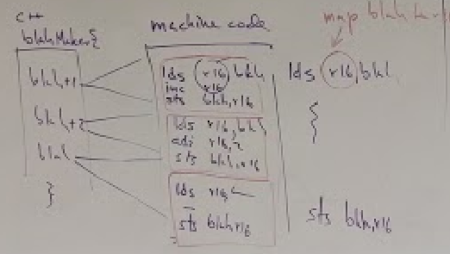 C++
blahMaker{
blah+1
blah+2
blah
}
machine code
lds r16, blah
inc r16
sts blah, r16
lds r16, blah
adi r16, 2
sts blah, r16
lds r16,
sts blah, r16
map blah
lds r16, blah
{
sts blah, r16